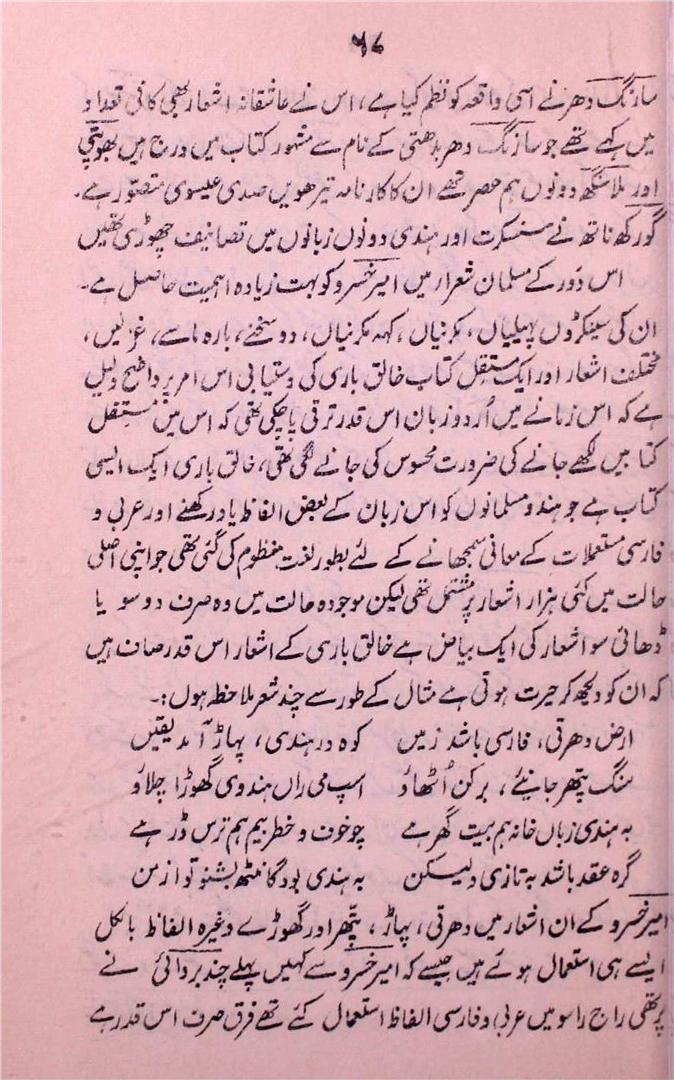 ۵۶
سارنگ دھر نے اسی واقعہ کو نظم کیا ہے، اس نے عاشقانہ اشعار بھی کافی تعداد
میں کہے تھے جو سارنگ دھر پدھتی کے نام سے مشہور کتاب میں درج ہیں بھوپتی
اور ملا سنگھ دونوں ہم عصر تھے ان کا کارنامہ تیرھویں صدی عیسوی متصور ہے۔
گورکھ ناتھ نے سنسکرت اور ہندی دونوں زبانوں میں تصانیف چھوڑی تھیں
اس دَور کے مسلمان شعرار میں امیر خسرو کو بہت زیادہ اہمیت حاصل ہے۔
ان کی سینکڑوں پہیلیاں، مکرنیاں، کہہ مکرنیاں، دوسخنے، بارہ ماسے، غزلیں،
مختلف اشعار اور ایک مستقل کتاب خالق باری کی دستیابی اس امر پر واضح دلیل
ہے کہ اس زمانے میں اُردو زبان اس قدر ترقی پا چکی تھی کہ اس میں مستقل
کتابیں لکھے جانے کی ضرورت محسوس کی جانے لگی تھی، خالق باری ایک ایسی
کتاب ہے جو ہندو مسلمانوں کو اس زبان کے بعض الفاظ یاد رکھنے اور عربی و
فارسی مستعملات کے معانی سمجھانے کے لئے بطور لغت منظوم کی گئی تھی جو اپنی اصلی
حالت میں کئی ہزار اشعار پر مشتمل تھی لیکن موجودہ حالت میں وہ صرف دو سو یا
ڈھائی سو اشعار کی ایک بیاض ہے خالق باری کے اشعار اس قدر صاف ہیں
کہ ان کو دیکھ کر حیرت ہوتی ہے مثال کے طور سے چند شعر ملاحظہ ہوں:۔
ارض دھرتی، فارسی باشد زمیں کوہ در ہندی، پہاڑ آمد یقیں
سنگ پتھر جانیئے، برکن اُٹھاؤ اسپ می راں ہندوی گھوڑا چلاؤ
بہ ہندی زباں خانہ ہم بیت گھر ہے چو خوف و خطر بیم ہم ترس ڈر ہے
گرہ عقد باشد بہ تازی ولیکن بہ ہندی بود گانٹھ بشنو تو از من
امیر خسرو کے ان اشعار میں دھرتی، پہاڑ، پتھر اور گھوڑے وغیرہ الفاظ بالکل
ایسے ہی استعمال ہوئے ہیں جیسے کہ امیر خسرو سے کہیں پہلے چند بردائی نے
پرتھی راج راسو میں عربی و فارسی الفاظ استعمال کئے تھے فرق صرف اس قدر ہے